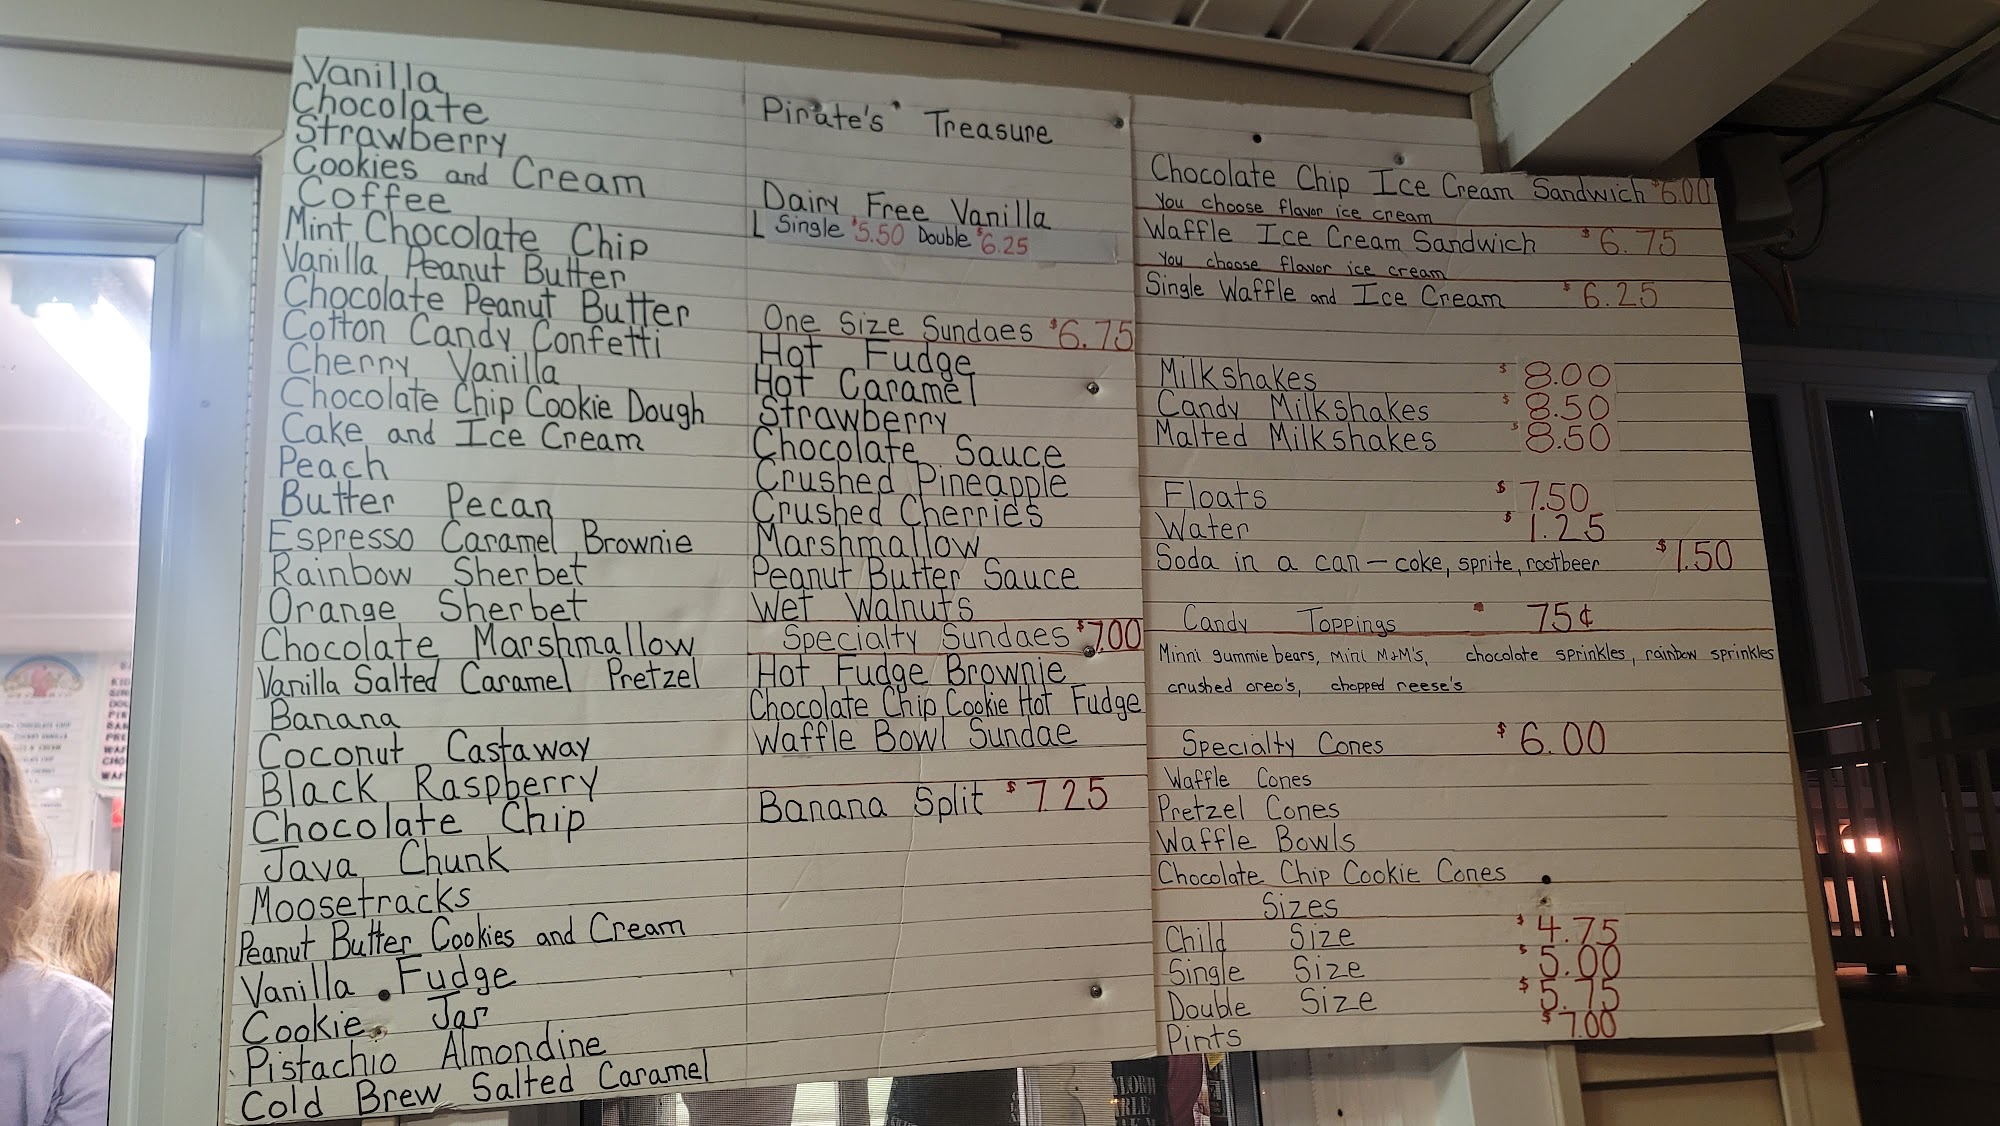 Vanilla
Chocolate
Strawberry
Cookies and Cream
Coffee
Mint Chocolate Chip
Vanilla Peanut Butter
Chocolate Peanut Butter
Cotton Candy Confetti
Cherry Vanilla
Chocolate Chip Cookie Dough
Cake and Ice Cream
Peach
Butter Pecan
Espresso Caramel Brownie
Rainbow Sherbet
Orange Sherbet
Chocolate Marshmallow
Vanilla Salted Caramel Pretzel
Banana
Coconut Castaway
Black Raspberry
Chocolate Chip
Java Chunk
Moosetracks
Peanut Butter Cookies and Cream
Vanilla Fudge
Cookie Jar
Pistachio Almondine
Cold Brew Salted Caramel
Pirate's Treasure
Dairy Free Vanilla
Single $5.50 Double $6.25
One Size Sundaes $6.75
Hot Fudge
Hot Caramel
Strawberry
Chocolate Sauce
Crushed Pineapple
Crushed Cherries
Marshmallow
Peanut Butter Sauce
Wet Walnuts
Specialty Sundaes $7.00
Hot Fudge Brownie
Chocolate Chip Cookie Hot Fudge
Waffle Bowl Sundae
Banana Split $7.25
Chocolate Chip Ice Cream Sandwich $6.00
You choose flavor ice cream
Waffle Ice Cream Sandwich $6.75
You choose flavor ice cream
Single Waffle and Ice Cream $6.25
Milkshakes $8.00
Candy Milkshakes $8.50
Malted Milkshakes $8.50
Floats $7.50
Water $1.25
Soda in a can — coke, sprite, rootbeer $1.50
Candy Toppings 75¢
Minni gummie bears, mini M+M's, chocolate sprinkles, rainbow sprinkles
crushed oreo's, chopped reese's
Specialty Cones $6.00
Waffle Cones
Pretzel Cones
Waffle Bowls
Chocolate Chip Cookie Cones
Sizes
Child Size $4.75
Single Size $5.00
Double Size $5.75
Pints $7.00